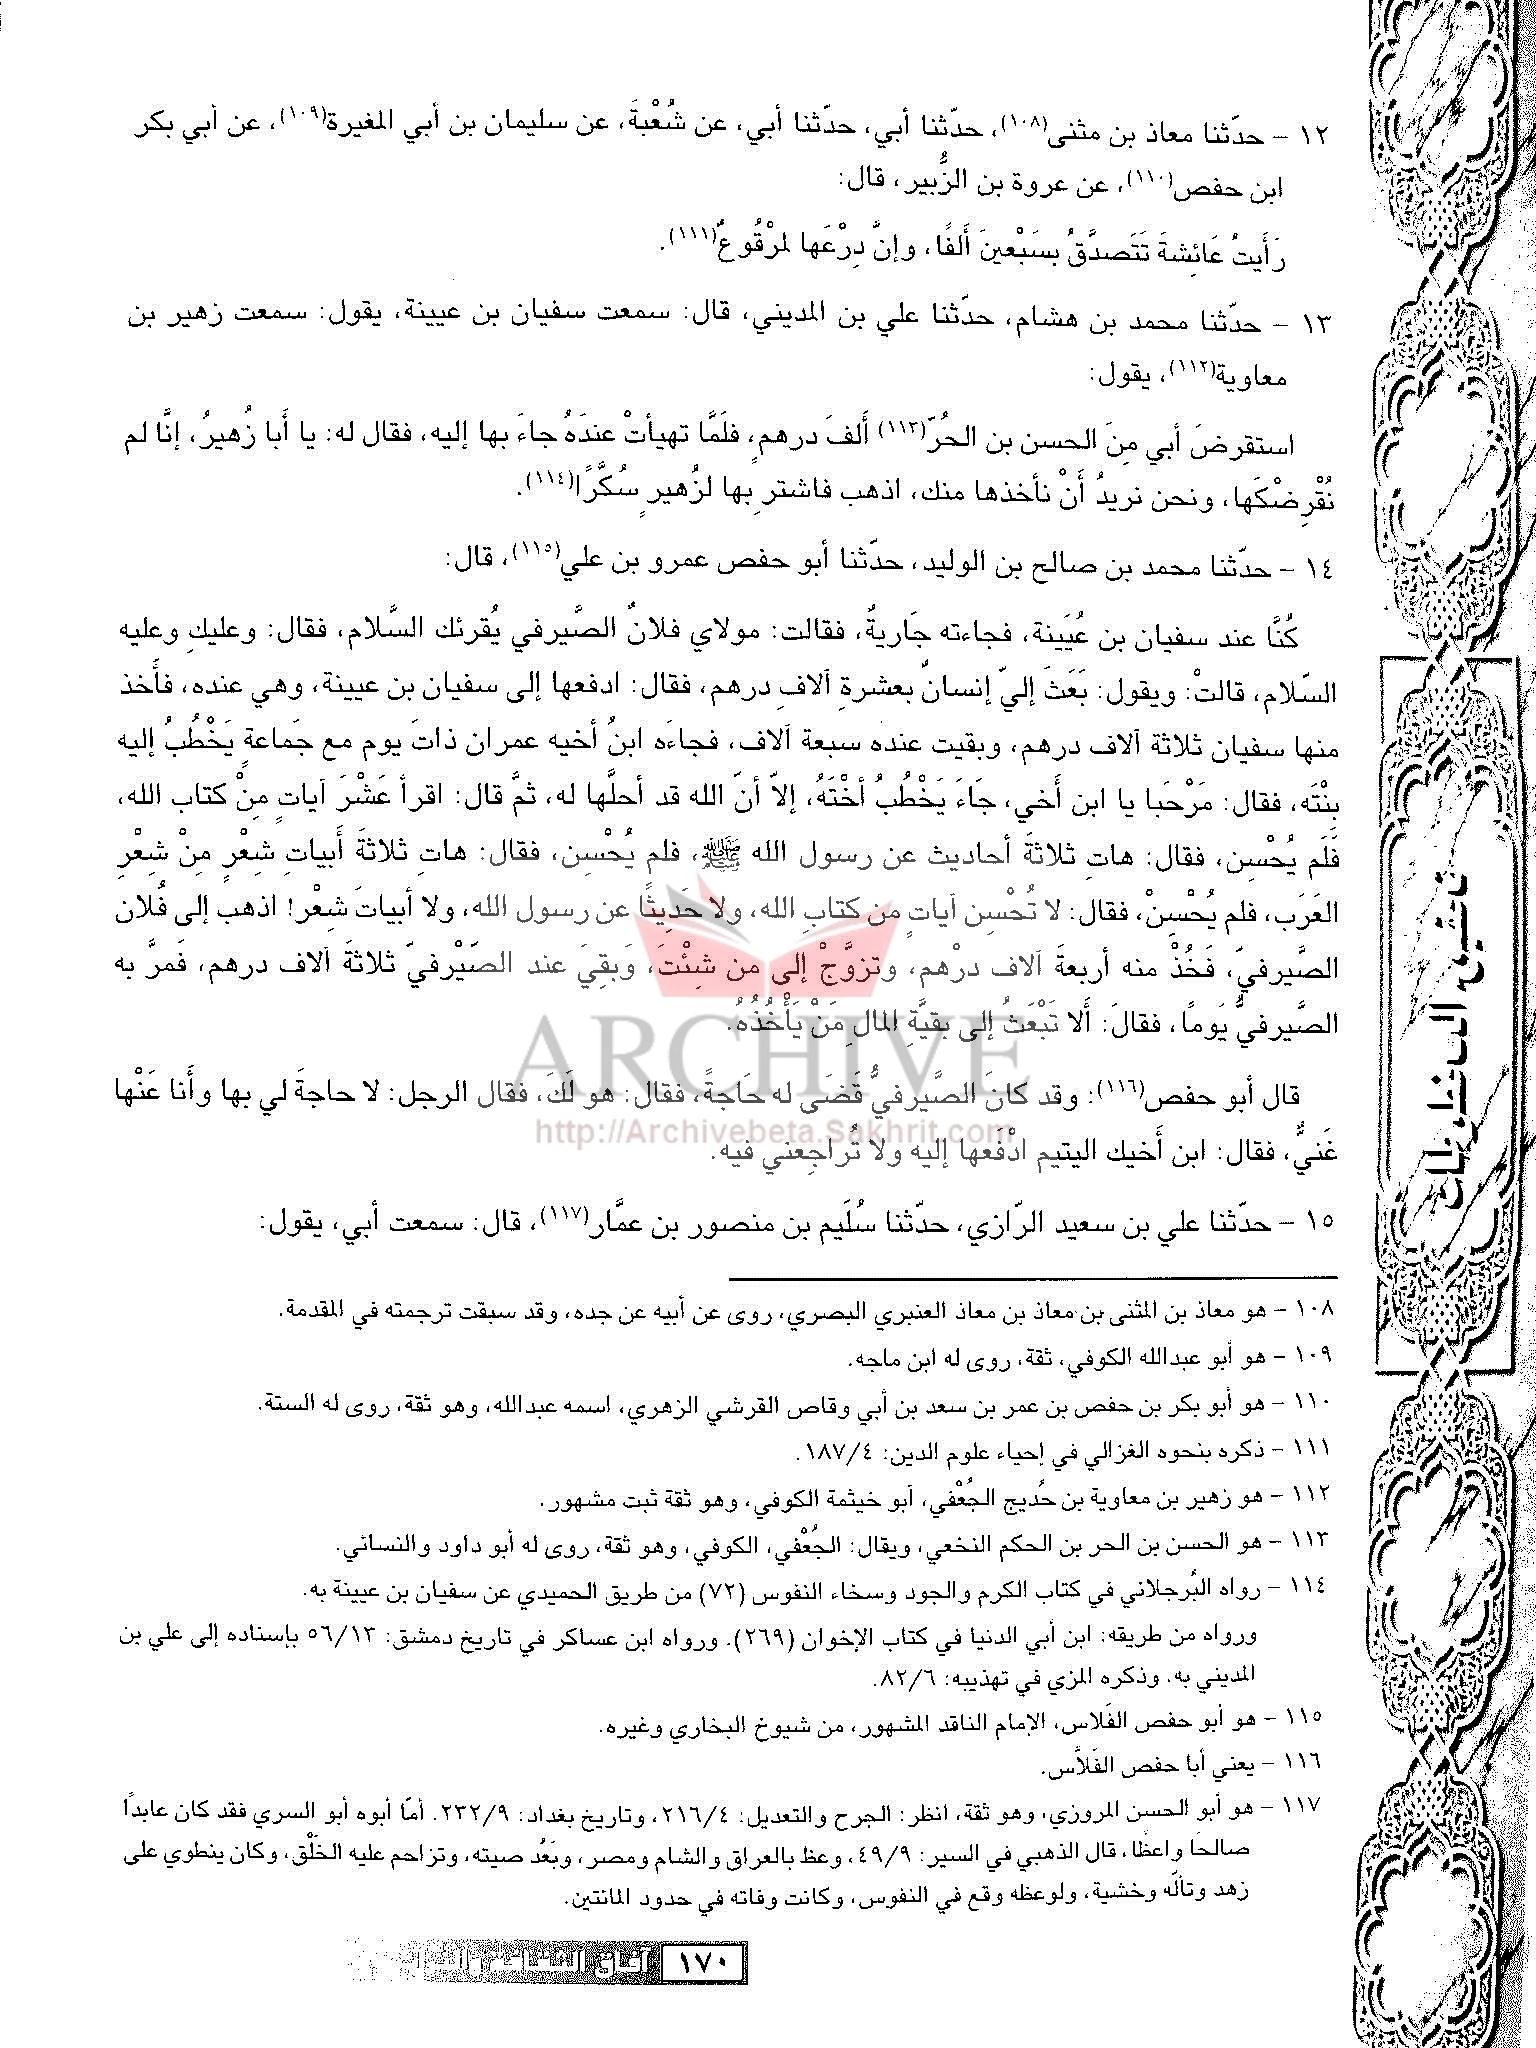 ١٢ - حدّثنا معاذ بن مثنى(١٠٨)، حدّثنا أبي، حدّثنا أبي، عن شُعْبةَ، عن سليمان بن أبي المغيرة(١٠٩)، عن أبي بكر
ابن حفص(١١٠)، عن عروة بن الزُّبير، قال:
رَأَيتُ عَائِشةَ تَتَصدَّقُ بسَبْعينَ أَلفًا، وإنَّ دِرْعَها لمرْقُوعٌ(١١١).
١٣ - حدّثنا محمد بن هشام، حدّثنا علي بن المديني، قال: سمعت سفيان بن عيينة، يقول: سمعت زهير بن
معاوية(١١٢)، يقول:
استقرضَ أبي مِنَ الحسن بن الحُرّ(١١٣) أَلفَ درهمٍ، فلَمَّا تهيأتْ عندَهُ جاءَ بها إليه، فقال له: يا أَبا زُهيرُ، إنَّا لم
نُقْرِضْكَها، ونحن نريدُ أَنْ نأخذها منك، اذهب فاشترِ بها لزُهيرٍ سُكَّرًا(١١٤).
١٤ - حدّثنا محمد بن صالح بن الوليد، حدّثنا أبو حفص عمرو بن علي(١١٥)، قال:
كُنَّا عند سفيان بن عُيَينة، فجاءته جَاريةٌ، فقالت: مولاي فلانٌ الصَّيرفي يُقرئك السَّلام، فقال: وعليكِ وعليه
السّلام، قالتْ: ويقول: بَعَثَ إليّ إنسانٌ بعشرةِ آلافِ درهم، فقال: ادفعها إلى سفيان بن عيينة، وهي عنده، فأَخذ
منها سفيان ثلاثة آلاف درهم، وبقيت عنده سبعة آلاف، فجاءَه ابنُ أخيه عمران ذاتَ يوم مع جَماعةٍ يَخْطُبُ إليه
بنْتَه، فقال: مَرْحَبا يا ابن أَخي، جَاءَ يَخْطُبُ أخْتَهُ، إلاّ أنّ الله قد أحلَّها له، ثمَّ قال: اقرأ عَشْرَ آياتٍ مِنْ كتاب الله،
فَلَم يُحْسِن، فقال: هاتِ ثلاثةَ أحاديث عن رسول الله ﷺ، فلم يُحْسِن، فقال: هاتِ ثلاثةَ أَبياتِ شِعْرٍ مِنْ شِعْرِ
العَرَب، فلم يُحْسِنْ، فقال: لا تُحْسِن آياتٍ من كتابِ الله، ولا حَدِيثًا عن رسول الله، ولا أبياتَ شِعْر! اذهب إلى فُلان
الصَّيرفيّ، فَخُذْ منه أربعةَ آلاف درْهم، وتزوَّجْ إلى من شِئْتَ، وَبقِيَ عند الصّيْرفيّ ثلاثةَ آلاف درهم، فَمرَّ به
الصَّيرفيُّ يَومًا، فقالَ: أَلا تَبْعَثُ إلى بقيَّةِ المالِ مَنْ يَأْخُذُهُ.
قال أبو حفص(١١٦): وقد كانَ الصَّيرفيُّ قَضَى له حَاجةً، فقال: هو لَكَ، فقال الرجل: لا حاجةَ لي بها وأَنا عَنْها
غَنيٌّ، فقال: ابن أَخيك اليتيم ادْفَعها إليه ولا تُراجِعني فيه.
١٥ - حدّثنا علي بن سعيد الرّازي، حدّثنا سُلَيم بن منصور بن عمَّار(١١٧)، قال: سمعت أبي، يقول:
١٠٨ - هو معاذ بن المثنى بن معاذ بن معاذ العنبري البصري، روى عن أبيه عن جده، وقد سبقت ترجمته في المقدمة.
١٠٩ - هو أبو عبدالله الكوفي، ثقة، روى له ابن ماجه.
١١٠ - هو أبو بكر بن حفص بن عمر بن سعد بن أبي وقاص القرشي الزهري، اسمه عبدالله، وهو ثقة، روى له الستة.
١١١ - ذكره بنحوه الغزالي في إحياء علوم الدين: ١٨٧/٤.
١١٢ - هو زهير بن معاوية بن حُديج الجُعْفي، أبو خيثمة الكوفي، وهو ثقة ثبت مشهور.
١١٣ - هو الحسن بن الحر بن الحكم النخعي، ويقال: الجُعْفي، الكوفي، وهو ثقة، روى له أبو داود والنسائي.
١١٤ - رواه البُرجلاني في كتاب الكرم والجود وسخاء النفوس (٧٢) من طريق الحميدي عن سفيان بن عيينة به.
ورواه من طريقه: ابن أبي الدنيا في كتاب الإخوان (٢٦٩). ورواه ابن عساكر في تاريخ دمشق: ٥٦/١٣ بإسناده إلى علي بن
المديني به. وذكره المزي في تهذيبه: ٨٢/٦.
١١٥ - هو أبو حفص الفَلاس، الإمام الناقد المشهور، من شيوخ البخاري وغيره.
١١٦ - يعني أبا حفص الفَلاَّس.
١١٧ - هو أبو الحسن المروزي، وهو ثقة، انظر: الجرح والتعديل: ٢١٦/٤، وتاريخ بغداد: ٢٣٢/٩. أمّا أبوه أبو السري فقد كان عابدًا
صالحًا واعظًا، قال الذهبي في السير: ٤٩/٩، وعظ بالعراق والشام ومصر، وبَعُد صيته، وتزاحم عليه الخَلْق، وكان ينطوي على
زهد وتألّه وخشية، ولوعظه وقع في النفوس، وكانت وفاته في حدود المائتين.
١٧٠ آفاق الثقافة والتراث
ARCHIVE
http://Archivebeta.Sakhrit.com